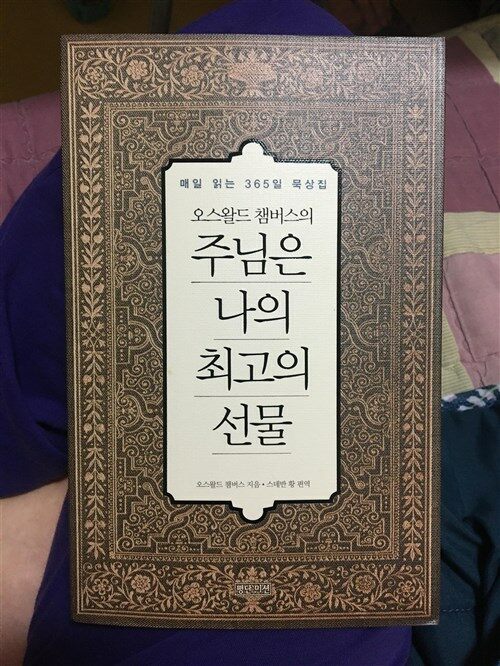 매일 읽는 365일 묵상집
오스왈드 챔버스의
주님은
나의
최고의
선물
오스왈드 챔버스 지음 • 스데반 황 편역
명단 미션